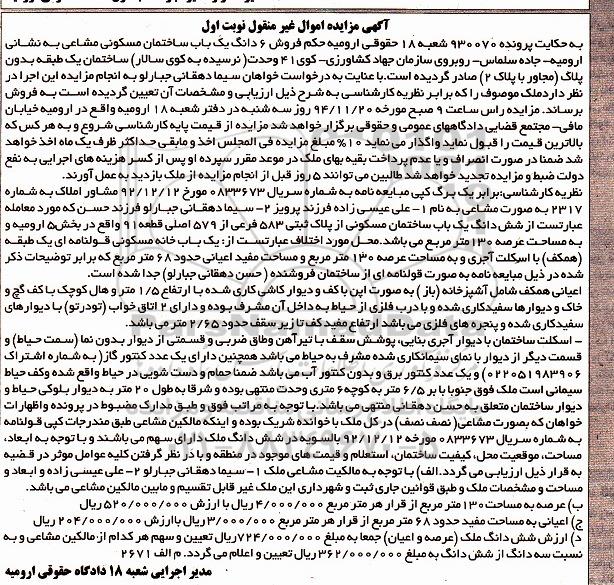 آگهی مزایده اموال غیر منقول نوبت اول
به حکایت پرونده ۹۳۰۰۷۰ شعبه ۱۸ حقوقی ارومیه حکم فروش ۶ دانگ یک باب ساختمان مسکونی مشاعی به نشانی
ارومیه- جاده سلماس- روبروی سازمان جهاد کشاورزی- کوی ۴۱ وحدت( نرسیده به کوی سالار) ساختمان یک طبقه بدون
پلاک (مجاور با پلاک ۲) صادر گردیده است.با عنایت به درخواست خواهان سیما دهقانی جبارلو به انجام مزایده این اجرا در
نظر دارد ملک موصوف را که برابر نظریه کارشناسی به شرح ذیل ارزیابی و مشخصات آن تعیین گردیده است به فروش
برساند. مزایده راس ساعت ۹ صبح مورخه ۹۴/۱۱/۲۰ روز سه شنبه در دفتر شعبه ۱۸ ارومیه واقع در ارومیه خیابان
مافی- مجتمع قضایی دادگاههای عمومی و حقوقی برگزار خواهد شد مزایده از قیمت پایه کارشناسی شروع و به هر کس که
بالاترین قیمت را قبول نماید واگذار می نماید ۱۰% مبلغ مزایده فی المجلس اخذ و مابقی حداکثر ظرف یک ماه اخذ خواهد
شد ضمنا در صورت انصراف و یا عدم پرداخت بقیه بهای ملک در موعد مقرر سپرده او پس از کسر هزینه های اجرایی به نفع
دولت ضبط و مزایده تجدید خواهد شد طالبین می توانند ۵ روز قبل از انجام مزایده از ملک بازدید به عمل آورند.
نظریه کارشناسی:برابر یک برگ کپی مبایعه نامه به شماره سریال ۰۸۳۳۶۷۳ مورخ ۹۲/۱۲/۱۲ مشاور املاک به شماره
۲۳۱۷ به صورت مشاعی به نام ۱- علی عیسی زاده فرزند پرویز ۲- سیما دهقانی جبارلو فرزند حسن که مورد معامله
عبارتست از شش دانگ یک باب ساختمان مسکونی از پلاک ثبتی ۵۸۳ فرعی از ۵۷۹ اصلی قطعه ۹۱ واقع در بخش۵ ارومیه و
به مساحت عرصه ۱۳۰ متر مربع می باشد.محل مورد اختلاف عبارتست از: یک باب خانه مسکونی قولنامه ای یک طبقه
(همکف) با اسکلت آجری و به مساحت عرصه ۱۳۰ متر مربع و مساحت مفید اعیانی حدود ۶۸ متر مربع که برابر توضیحات ذکر
شده در ذیل مبایعه نامه به صورت قولنامه ای از ساختمان فروشنده ( حسن دهقانی جبارلو) جدا شده است.
اعیانی همکف شامل آشپزخانه (باز) به صورت اپن با کف و دیوار کاشی کاری شده با ارتفاع ۱/۵ متر و هال کوچک با کف گچ و
خاک و دیوارها سفیدکاری شده و با درب فلزی از حیاط به داخل آن مشرف بوده و دارای ۲ اتاق خواب (تودرتو) با دیوارهای
سفیدکاری شده و پنجره های فلزی می باشد ارتفاع مفید کف تا زیر سقف حدود ۲/۶۵ متر می باشد.
- اسکلت ساختمان با دیوار آجری بنایی، پوشش سقف با تیرآهن وطاق ضربی و قسمتی از دیوار بدون نما (سمت حیاط) و
قسمت دیگر از دیوار با نمای سیمانکاری شده مشرف به حیاط می باشد همچنین دارای یک عدد کنتور گاز( به شماره اشتراک
۰۲۲۰۵۱۹۸۳۹۰۶) و یک عدد کنتور برق و بدون کنتور آب می باشد ضمنا حمام و دست شویی در حیاط واقع شده وکف حیاط
سیمانی است ملک فوق جنوبا با بر ۶/۵ متر به کوچه ۶ متری وحدت منتهی بوده و شرقا به طول ۲۰ متر به دیوار بلوکی حیاط و
دیوار ساختمان متعلق به حسن دهقانی منتهی می باشد.با توجه به مراتب فوق و طبق مدارک مضبوط در پرونده و اظهارات
خواهان که بصورت مشاعی( نصف نصف) در کل ملک با خوانده شریک بوده و اینکه مالکین مشاعی طبق مندرجات کپی قولنامه
به شماره سریال ۰۸۳۳۶۷۳ مورخه ۹۲/۱۲/۱۲ بالسویه در شش دانگ ملک دارای سهم می باشند و با توجه به ابعاد،
مساحت، موقعیت محل، کیفیت ساختمان، استعلام و قیمت های موجود در منطقه و با در نظر گرفتن کلیه عوامل موثر در قضیه
به قرار ذیل ارزیابی می گردد.الف) با توجه به مالکیت مشاعی ملک ۱- سیما دهقانی جبارلو ۲- علی عیسی زاده و ابعاد و
مساحت و مشخصات ملک و طبق قوانین جاری ثبت و شهرداری این ملک غیر قابل تقسیم و مابین مالکین مشاعی می باشد.
ب) عرصه به مساحت۱۳۰ متر مربع از قرار هر متر مربع ۴/۰۰۰/۰۰۰ ریال با ارزش ۵۲۰/۰۰۰/۰۰۰ ریال
ج) اعیانی به مساحت مفید حدود ۶۸ متر مربع از قرار هر متر مربع ۳/۰۰۰/۰۰۰ریال با ارزش ۲۰۴/۰۰۰/۰۰۰ ریال
د) ارزش شش دانگ ملک (عرصه و اعیان) جمعا به مبلغ ۷۲۴/۰۰۰/۰۰۰ ریال تعیین و سهم هر کدام از مالکین مشاعی و به
نسبت سه دانگ از شش دانگ به مبلغ ۳۶۲/۰۰۰/۰۰۰ ریال تعیین و اعلام می گردد. م الف ۲۶۷۱
مدیر اجرایی شعبه ۱۸ دادگاه حقوقی ارومیه